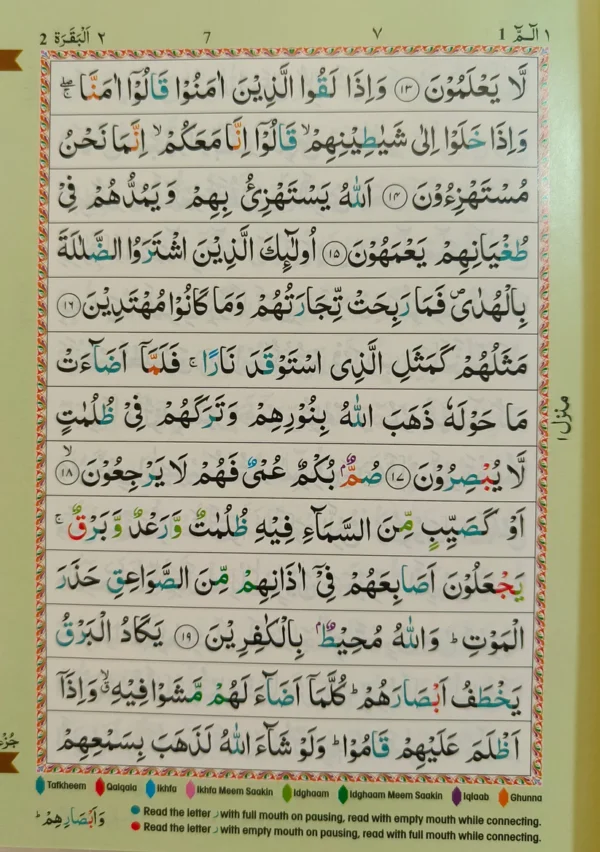 ٢ اَلْبَقَرَة 2 7 ٧ ١ الٓمّٓ 1
لَّا يَعْلَمُوْنَ ﴿١٣﴾ وَاِذَا لَقُوا الَّذِيْنَ اٰمَنُوْا قَالُوْٓا اٰمَنَّا ۖۚ
وَاِذَا خَلَوْا اِلٰى شَيٰطِيْنِهِمْ ۙ قَالُوْٓا اِنَّا مَعَكُمْ ۙ اِنَّمَا نَحْنُ
مُسْتَهْزِءُوْنَ ﴿١٤﴾ اَللّٰهُ يَسْتَهْزِئُ بِهِمْ وَيَمُدُّهُمْ فِىْ
طُغْيَانِهِمْ يَعْمَهُوْنَ ﴿١٥﴾ اُولٰٓئِكَ الَّذِيْنَ اشْتَرَوُا الضَّلٰلَةَ
بِالْهُدٰى ۪ فَمَا رَبِحَتْ تِّجَارَتُهُمْ وَمَا كَانُوْا مُهْتَدِيْنَ ﴿١٦﴾
مَثَلُهُمْ كَمَثَلِ الَّذِى اسْتَوْقَدَ نَارًا ۚ فَلَمَّآ اَضَآءَتْ
مَا حَوْلَهٗ ذَهَبَ اللّٰهُ بِنُوْرِهِمْ وَتَرَكَهُمْ فِىْ ظُلُمٰتٍ
لَّا يُبْصِرُوْنَ ﴿١٧﴾ صُمٌّۢ بُكْمٌ عُمْىٌ فَهُمْ لَا يَرْجِعُوْنَ ﴿١٨﴾ ۙ
اَوْ كَصَيِّبٍ مِّنَ السَّمَآءِ فِيْهِ ظُلُمٰتٌ وَّرَعْدٌ وَّبَرْقٌ ۚ
يَجْعَلُوْنَ اَصَابِعَهُمْ فِىْٓ اٰذَانِهِمْ مِّنَ الصَّوَاعِقِ حَذَرَ
الْمَوْتِ ؕ وَاللّٰهُ مُحِيْطٌۢ بِالْكٰفِرِيْنَ ﴿١٩﴾ يَكَادُ الْبَرْقُ
يَخْطَفُ اَبْصَارَهُمْ ؕ كُلَّمَآ اَضَآءَ لَهُمْ مَّشَوْا فِيْهِ ۙۗ وَاِذَآ
اَظْلَمَ عَلَيْهِمْ قَامُوْا ؕ وَلَوْ شَآءَ اللّٰهُ لَذَهَبَ بِسَمْعِهِمْ
منزل ١
Tafkheem Qalqala Ikhfa Ikhfa Meem Saakin Idghaam Idghaam Meem Saakin Iqlaab Ghunna
وَاَبْصَارِهِمْ ؕ
Read the letter ر with full mouth on pausing, read with empty mouth while connecting.
Read the letter ر with empty mouth on pausing, read with full mouth while connecting.